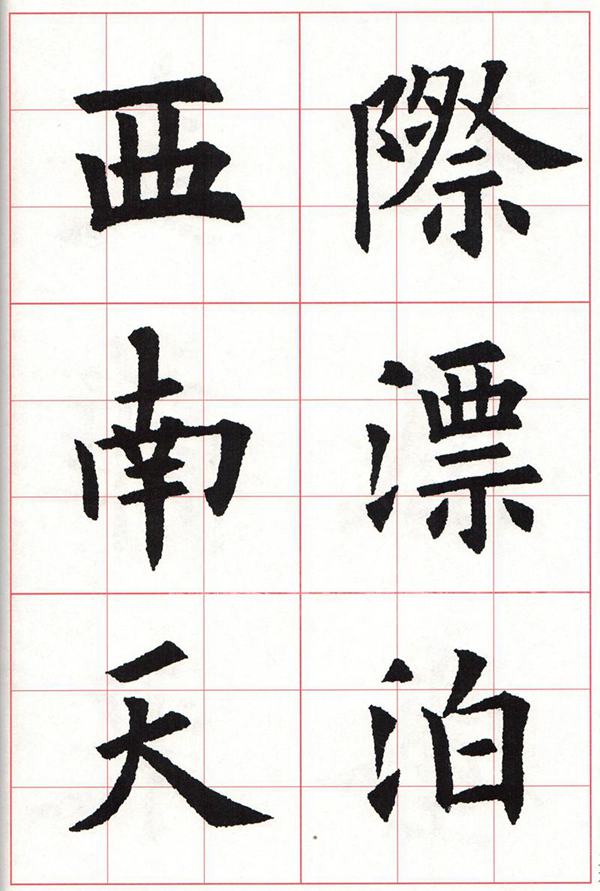 際漂泊
西南天